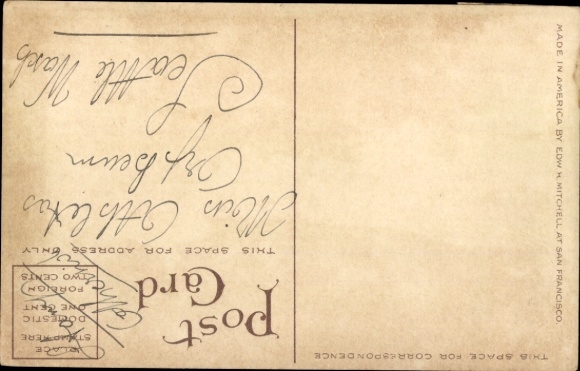 THIS SPACE FOR CORRESPONDENCE
Post
Card
PLACE
STAMP HERE
DOMESTIC
ONE CENT
FOREIGN
TWO CENTS
THIS SPACE FOR ADDRESS ONLY
Miss
Seattle Wash
MADE IN AMERICA BY EDW. H. MITCHELL AT SAN FRANCISCO.